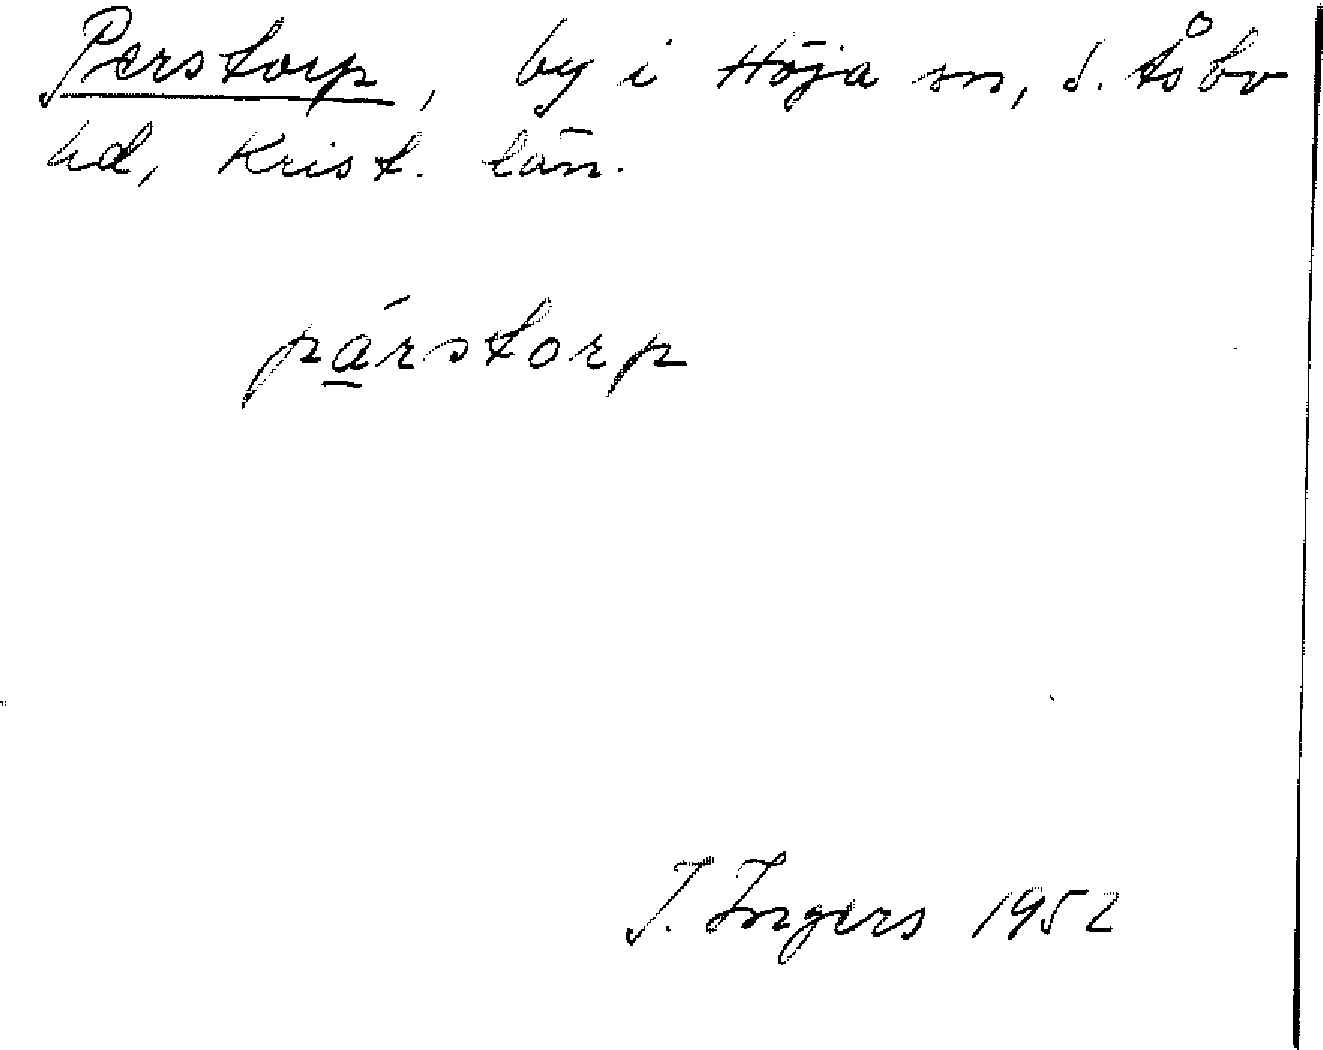 Perstorp, by i Höja sn, S. Åsbo
hd, Krist. län.
pá̱rstorp
I. Ingers 1952